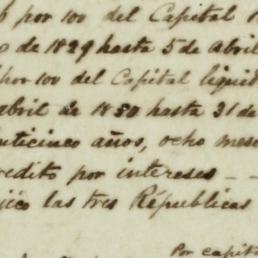 6 por 100 del Capital
de 1829 hasta 5 de Abril
por 100 del Capital liquid
abril de 1830 hasta 31 de
nticinco años, ocho mese
redito por intereses - -
jico las tres Républicas
Por capit